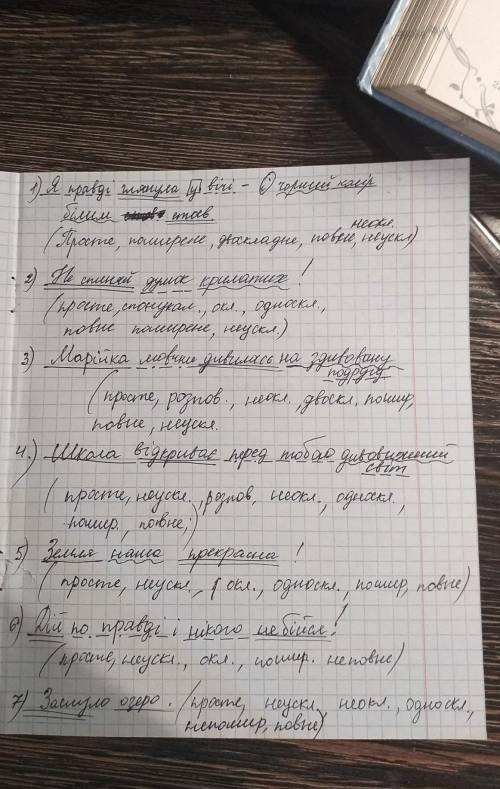 1) Я правді глянула у вічі – і чорний колір
білим став
неокл.
(Просте, поширене, двоскладне, повне, неускл)
2) Не спиняй думок крилатих!
(просте, спонукал., окл., односкл.,
повне поширене, неускл.)
3) Марійка мовчки дивилась на здивовану
подругу
(просте, розпов., неокл., двоскл. пошир,
повне, неускл.
4.) Школа відкриває перед тобою дивовижний
світ
(просте, неускл., розпов, неокл., односкл.,
пошир., повне;)
5) Земля наша прекрасна!
(просте, неускл., окл., односкл., пошир, повне)
6) Дій по правді і нікого не бійся!
(просте, неускл., окл., пошир. неповне)
7) Заснуло озеро. (просте, неускл, неокл., односкл.,
непошир, повне)